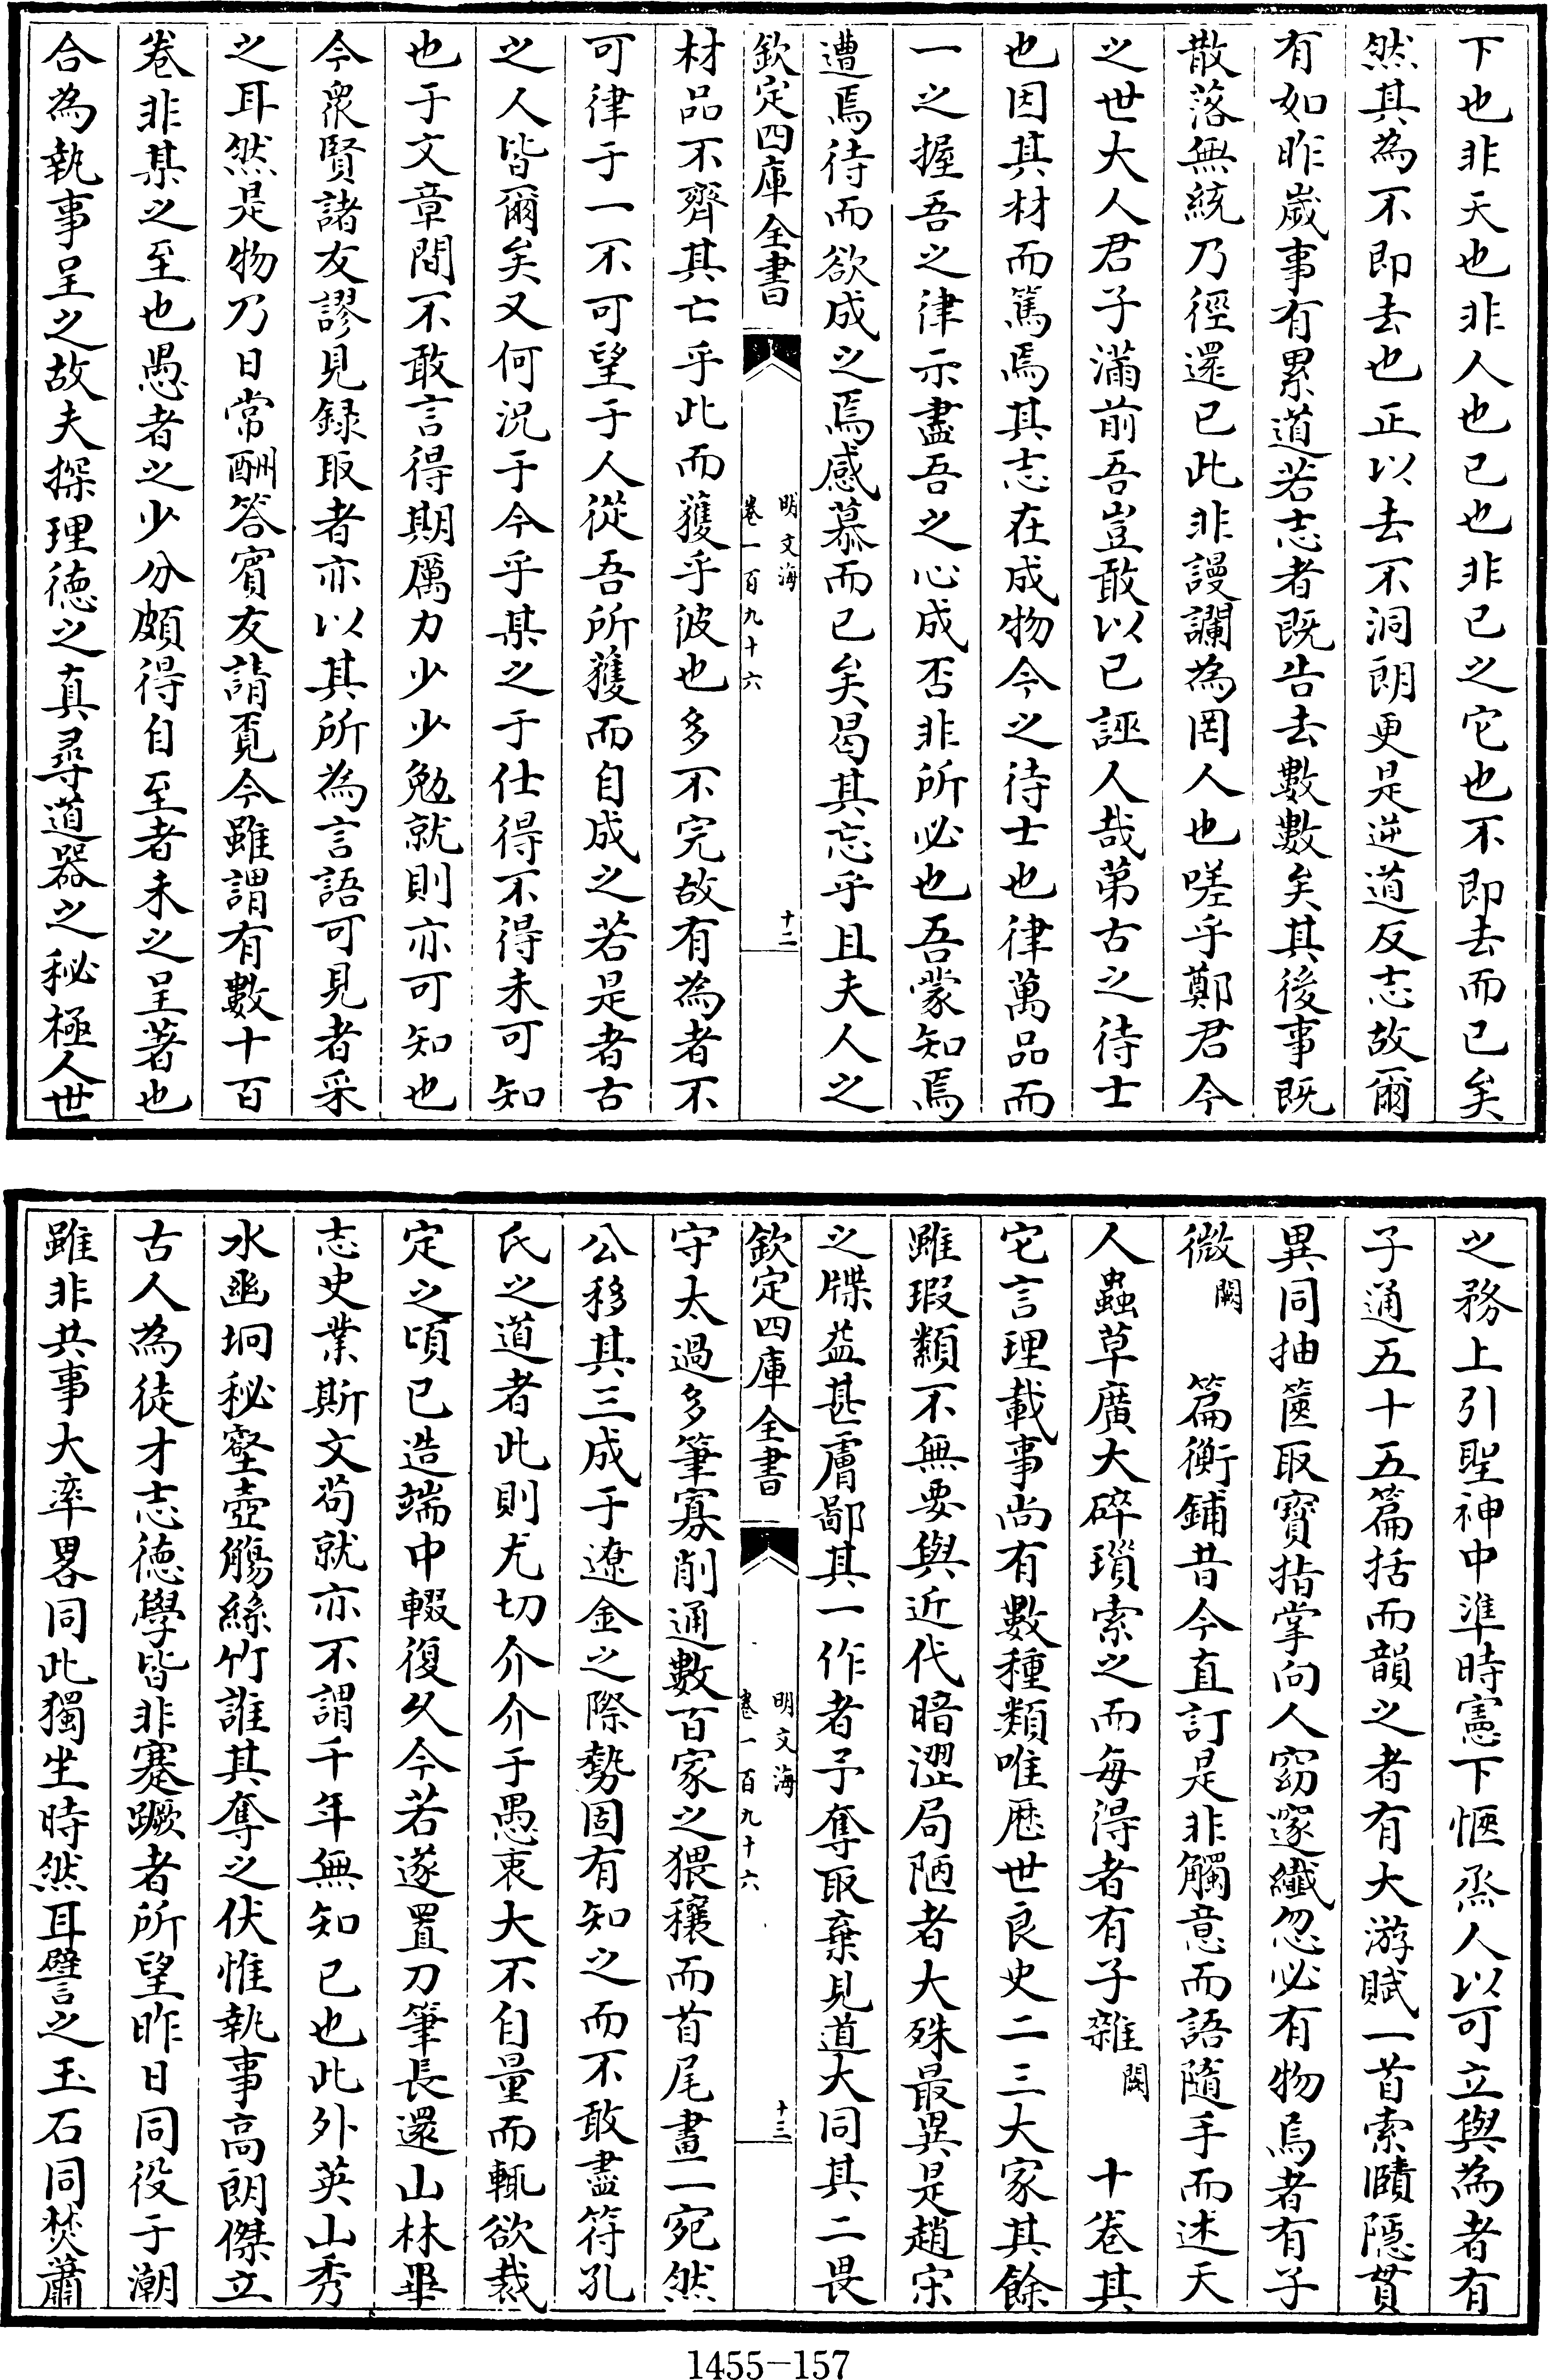 下也非天也非人也已也非已之它也不即去而已矣
然其為不即去也正以去不洞朗更是逆道反志故爾
有如昨嵗事有累道若志者既告去數數矣其後事既
散落無統乃徑還已此非謾讕為罔人也嗟乎鄭君今
之世大人君子滿前吾豈敢以已誣人哉第古之待士
也因其材而篤焉其志在成物今之待士也律萬品而
一之握吾之律示盡吾之心成否非所必也吾蒙知焉
遭焉待而欲成之焉感慕而已矣曷其忘乎且夫人之
欽定四庫全書
明文海
卷一百九十六
十二
材品不齊其亡乎此而獲乎彼也多不完故有為者不
可律于一不可望于人從吾所獲而自成之若是者古
之人皆爾矣又何況于今乎某之于仕得不得未可知
也于文章間不敢言得期厲力少少勉就則亦可知也
今衆賢諸友謬見録取者亦以其所為言語可見者采
之耳然是物乃日常酬答賓友請覔今雖謂有數十百
卷非某之至也愚者之少分頗得自至者未之呈著也
合為執事呈之故夫探理徳之真尋道器之秘極人世
之務上引聖神中準時憲下愜烝人以可立與為者有
子通五十五篇括而韻之者有大游賦一首索賾隱貫
異同抽篋取寶指掌向人窈邃纖忽必有物焉者有子
微闕 篇衡鋪昔今直訂是非觸意而語隨手而述天
人蟲草廣大碎瑣索之而每得者有子雜闕 十卷其
它言理載事尚有數種類唯厯世良史二三大家其餘
雖瑕纇不無要與近代暗澀局陋者大殊最異是趙宋
之牒益甚膚鄙其一作者予奪取棄見道大同其二畏
欽定四庫全書
明文海
卷一百九十六
十三
守太過多筆寡削通數百家之猥穰而首尾畫一宛然
公移其三成于遼金之際勢固有知之而不敢盡符孔
氏之道者此則尤切介介于愚衷大不自量而輒欲裁
定之頃已造端中輟復久今若遂置刀筆長還山林畢
志史業斯文茍就亦不謂千年無知已也此外英山秀
水幽坰秘壑壺觴絲竹誰其奪之伏惟執事高朗傑立
古人為徒才志徳學皆非蹇蹶者所望昨日同役于潮
雖非共事大率畧同此獨坐時然耳譬之玉石同焚蕭
1455-157